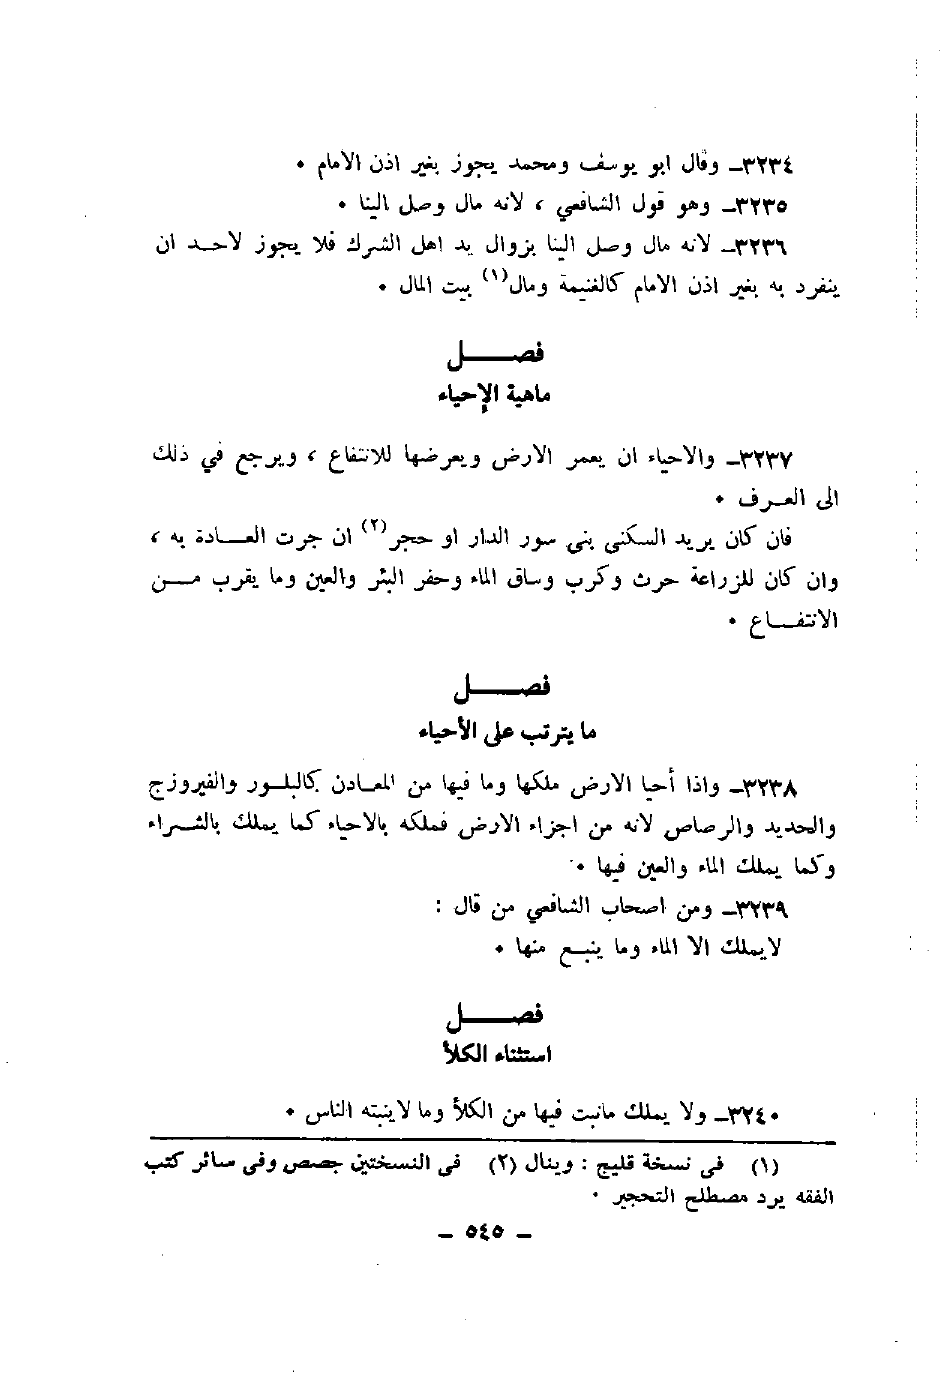 ٣٢٣٤ـ وقال ابو يوسف ومحمد يجوز بغير اذن الامام •
٣٢٣٥ـ وهو قول الشافعي ، لانه مال وصل الينا •
٣٢٣٦ـ لانه مال وصل الينا بزوال يد اهل الشرك فلا يجوز لاحـد ان
ينفرد به بغير اذن الامام كالغنيمة ومال(١) بيت المال •
فصـــــل
ماهية الإحياء
٣٢٣٧ـ والاحياء ان يعمر الارض ويعرضها للانتفاع ، ويرجع في ذلك
الى العـرف •
فان كان يريد السكنى بنى سور الدار او حجر(٢) ان جرت العــادة به ،
وان كان للزراعة حرث وكرب وساق الماء وحفر البئر والعين وما يقرب مــن
الانتفــاع •
فصـــــل
ما يترتب على الأحياء
٣٢٣٨ـ واذا أحيا الارض ملكها وما فيها من المعـادن كالبلـور والفيروزج
والحديد والرصاص لانه من اجزاء الارض فملكه بالاحياء كما يملك بالشـراء
وكما يملك الماء والعين فيها •
٣٢٣٩ـ ومن اصحاب الشافعي من قال :
لايملك الا الماء وما ينبـع منها •
فصـــــل
استثناء الكلأ
٣٢٤٠ـ ولا يملك مانبت فيها من الكلأ وما لاينبته الناس •
(١) في نسخة قليج : وينال (٢) في النسختين جصص وفي سائر كتب
الفقه يرد مصطلح التحجير •
ـ ٥٤٥ ـ